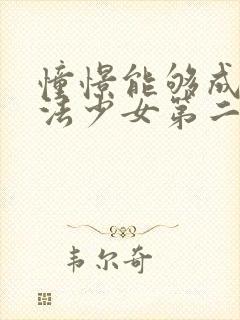 憧憬能够成
法少女第二
韦尔奇